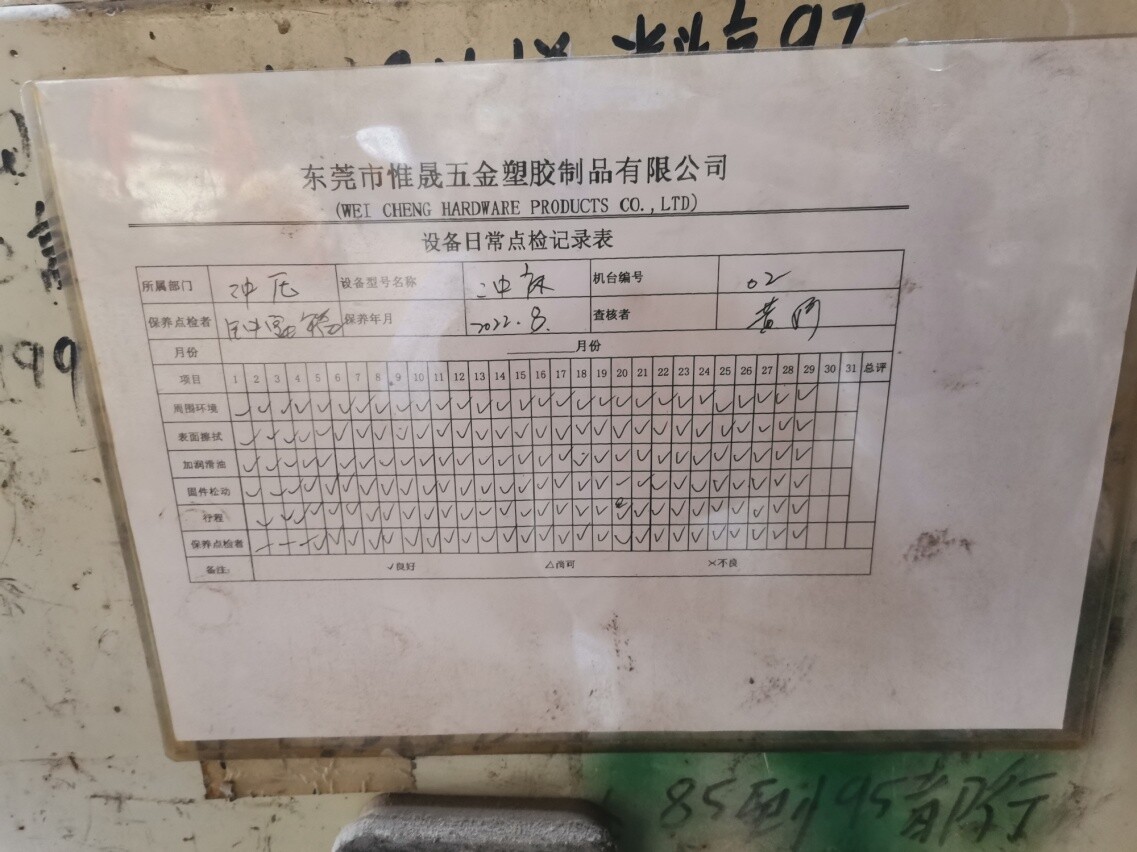 料高97
东莞市惟晟五金塑胶制品有限公司
(WEI CHENG HARDWARE PRODUCTS CO.,LTD)
设备日常点检记录表
所属部门 冲压 设备型号名称 冲床 机台编号 02
保养点检者 保养年月 2022.8. 查核者
月份 ______月份
项目 1 2 3 4 5 6 7 8 9 10 11 12 13 14 15 16 17 18 19 20 21 22 23 24 25 26 27 28 29 30 31 总评
周围环境 ✓ ✓ ✓ ✓ ✓ ✓ ✓ ✓ ✓ ✓ ✓ ✓ ✓ ✓ ✓ ✓ ✓ ✓ ✓ ✓ ✓ ✓ ✓ ✓ ✓ ✓ ✓ ✓ ✓
表面擦拭 ✓ ✓ ✓ ✓ ✓ ✓ ✓ ✓ ✓ ✓ ✓ ✓ ✓ ✓ ✓ ✓ ✓ ✓ ✓ ✓ ✓ ✓ ✓ ✓ ✓ ✓ ✓ ✓ ✓
加润滑油 ✓ ✓ ✓ ✓ ✓ ✓ ✓ ✓ ✓ ✓ ✓ ✓ ✓ ✓ ✓ ✓ ✓ ✓ ✓ ✓ ✓ ✓ ✓ ✓ ✓ ✓ ✓ ✓ ✓
固件松动 ✓ ✓ ✓ ✓ ✓ ✓ ✓ ✓ ✓ ✓ ✓ ✓ ✓ ✓ ✓ ✓ ✓ ✓ ✓ ✓ ✓ ✓ ✓ ✓ ✓ ✓ ✓ ✓ ✓
行程 ✓ ✓ ✓ ✓ ✓ ✓ ✓ ✓ ✓ ✓ ✓ ✓ ✓ ✓ ✓ ✓ ✓ ✓ ✓ ✓ ✓ ✓ ✓ ✓ ✓ ✓ ✓ ✓ ✓
保养点检者 ✓ ✓ ✓ ✓ ✓ ✓ ✓ ✓ ✓ ✓ ✓ ✓ ✓ ✓ ✓ ✓ ✓ ✓ ✓ ✓ ✓ ✓ ✓ ✓ ✓ ✓ ✓ ✓ ✓
备注: ✓良好 △尚可 ×不良
85到95都行